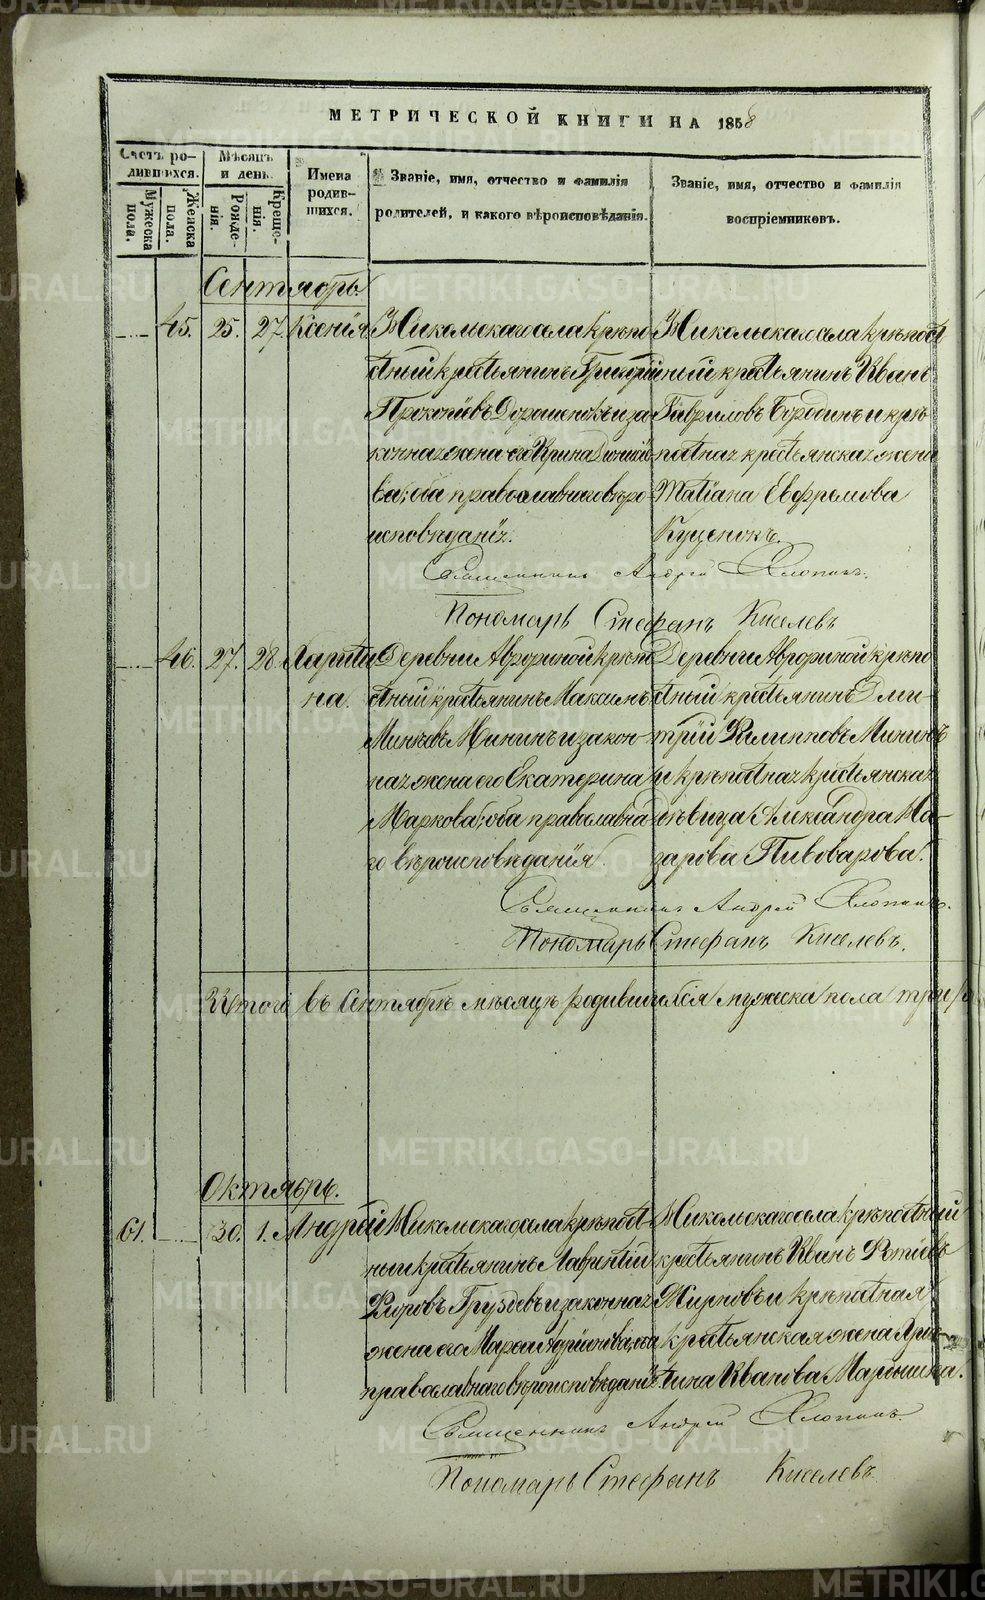 МЕТРИЧЕСКОЙ КНИГИ НА 1858
Счетъ ро-
дившихся.
Мужеска пола.
Женска пола.
Мѣсяцъ
и день.
Рожде-
нія.
Креще-
нія.
Имена
родив-
шихся.
Званіе, имя, отчество и фамилія
родителей, и какого вѣроисповѣданія.
Званіе, имя, отчество и фамилія
воспріемниковъ.
Сентябрь.
45. 25. 27. Ксенія
Никольскаго села крѣпо
стный крестьянинъ Григорій
Прокопіевъ Дорошенокъ и за
конная жена его Ирина
ва, оба православнаго вѣро
исповѣданія.
Никольскаго села крѣпост
ный крестьянинъ Иванъ
Гавриловъ Бородинъ и крѣ
постная крестьянская жена
Татіана Евфремова
Куценокъ.
Священникъ Андрей Хлопинъ.
Пономарь Стефанъ Киселевъ
46. 27. 28. Харити
на.
Деревни крѣпо
стный крестьянинъ Максимъ
Минѣевъ Мининъ и закон
ная жена его Екатерина
Маркова, оба православна
го вѣроисповѣданія.
Деревни крѣпо
стный крестьянинъ Дми-
трій Филипповъ Мининъ
и крѣпостная крестьянская
дѣвица Александра На-
зарова Пивоварова.
Священникъ Андрей Хлопинъ.
Пономарь Стефанъ Киселевъ.
Итого въ Сентябрѣ мѣсяцѣ родившихся мужеска пола три
Октябрь.
61. 30. 1. Андрей
Никольскаго села крѣпост
ный крестьянинъ Лаврентій
Груздевъ и законная
жена его Марѳа
православнаго вѣроисповѣданія
Никольскаго села крѣпостный
крестьянинъ Иванъ Фотіевъ
Жирновъ и крѣпостная
крестьянская жена Хри-
стина Иванова
Священникъ Андрей Хлопинъ.
Пономарь Стефанъ Киселевъ
METRIKI.GASO-URAL.RU